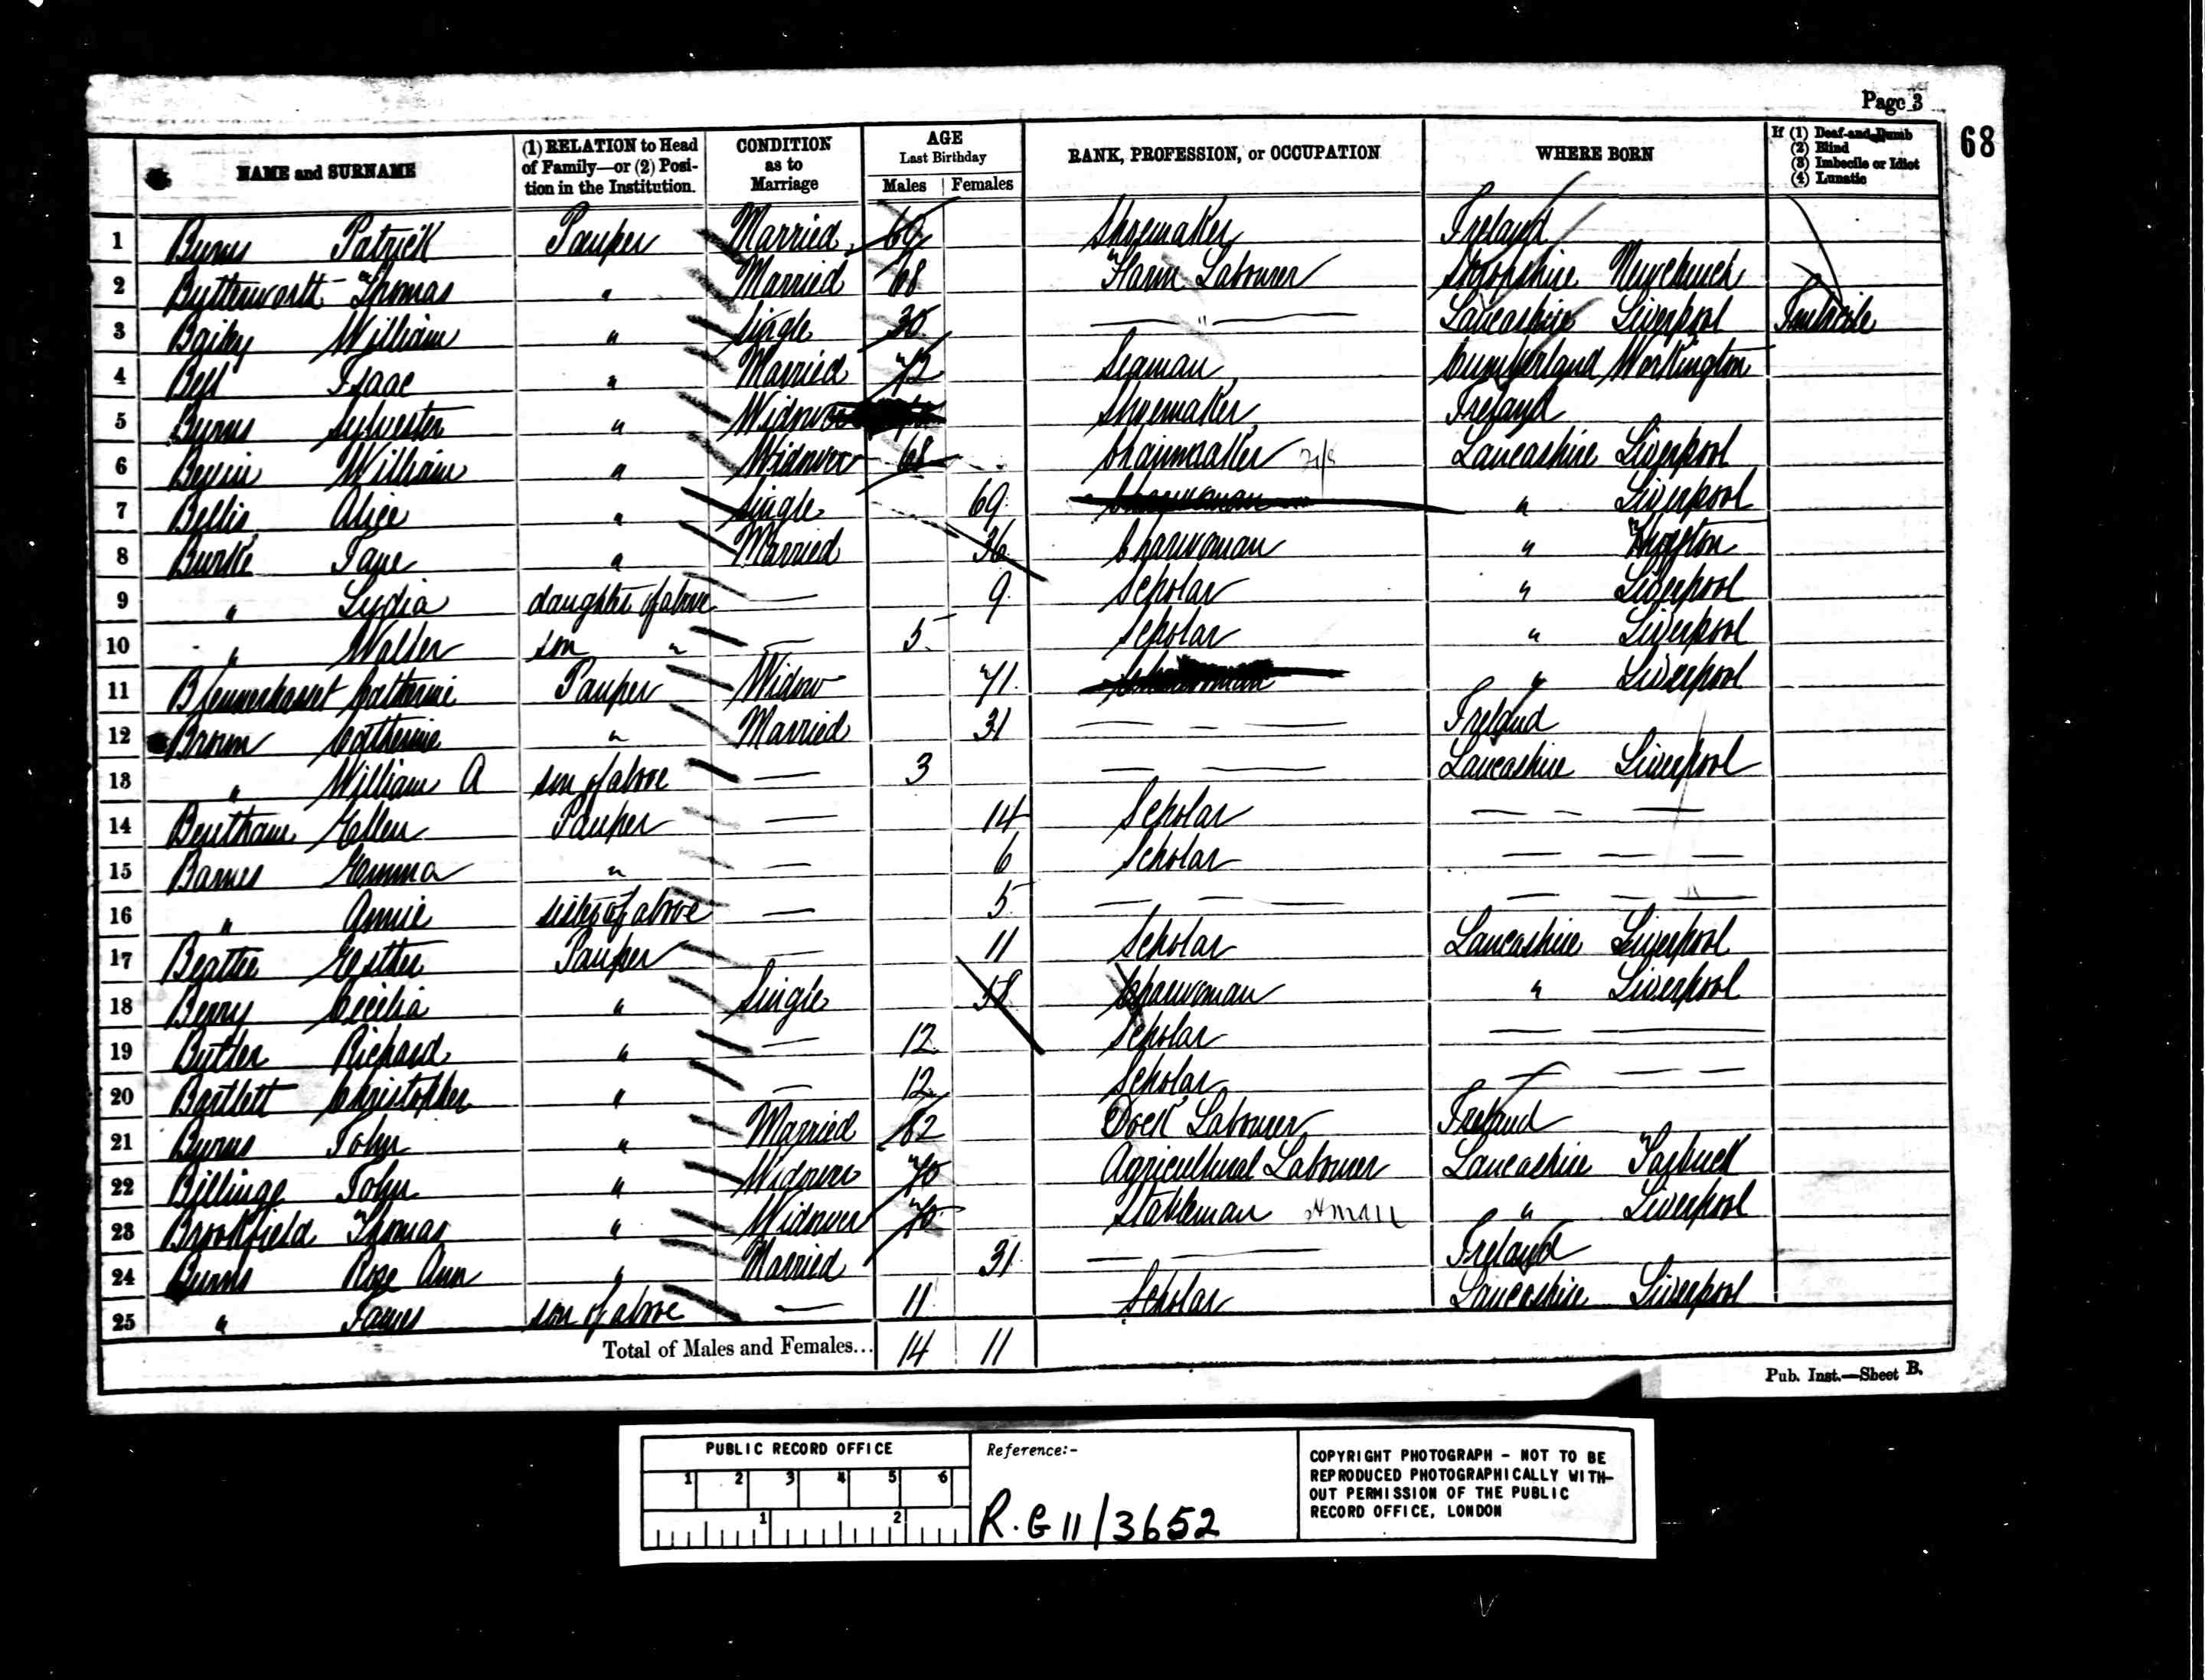 Page 3
68
NAME and SURNAME | (1) RELATION to Head of Family—or (2) Position in the Institution. | CONDITION as to Marriage | AGE Last Birthday Males | Females | RANK, PROFESSION, or OCCUPATION | WHERE BORN | If (1) Deaf-and-Dumb (2) Blind (3) Imbecile or Idiot (4) Lunatic
1 Burns Patrick Pauper Married 69 Shoemaker Ireland
2 Butterworth Thomas " Married 68 Farm Labourer Shropshire Newchurch
3 Bailey William " Single 30 — " — Lancashire Liverpool Imbecile
4 Bell Isaac " Married 72 Seaman Cumberland Workington
5 Burns Sylvester " Widower Shoemaker Ireland
6 William " Widower 68 Chainmaker Lancashire Liverpool
7 Bellis Alice " Single 69 Charwoman " Liverpool
8 Burke Jane " Married 36 Charwoman "
9 " Lydia daughter of above — 9 Scholar " Liverpool
10 " Walter son " — 5 Scholar " Liverpool
11 Blennerhasset Catherine Pauper Widow 71 Charwoman " Liverpool
12 Brown Catherine " Married 31 — — — Ireland
13 " William A son of above — 3 — — Lancashire Liverpool
14 Bentham Ellen Pauper — 14 Scholar — — —
15 Barnes Emma " — 6 Scholar — — —
16 " Annie sister of above — 5 — — — — — —
17 Beattie Esther Pauper — 11 Scholar Lancashire Liverpool
18 Berry Cecilia " Single 58 Charwoman " Liverpool
19 Butler Richard " — 12 Scholar — —
20 Bartlett Christopher " — 12 Scholar — — —
21 Burns John " Married 62 Dock Labourer Ireland
22 Billinge John " Widower 70 Agricultural Labourer Lancashire Tarbuck
23 Brookfield Thomas " Widower 70 Stableman " Liverpool
24 Burns Rose Ann " Married 31 — — Ireland
25 " James son of above — 11 Scholar Lancashire Liverpool
Total of Males and Females... 14 11
Pub. Inst.—Sheet B.
PUBLIC RECORD OFFICE
1 2 3 4 5 6
1 2
Reference:-
R.G 11/3652
COPYRIGHT PHOTOGRAPH - NOT TO BE
REPRODUCED PHOTOGRAPHICALLY WITH-
OUT PERMISSION OF THE PUBLIC
RECORD OFFICE, LONDON